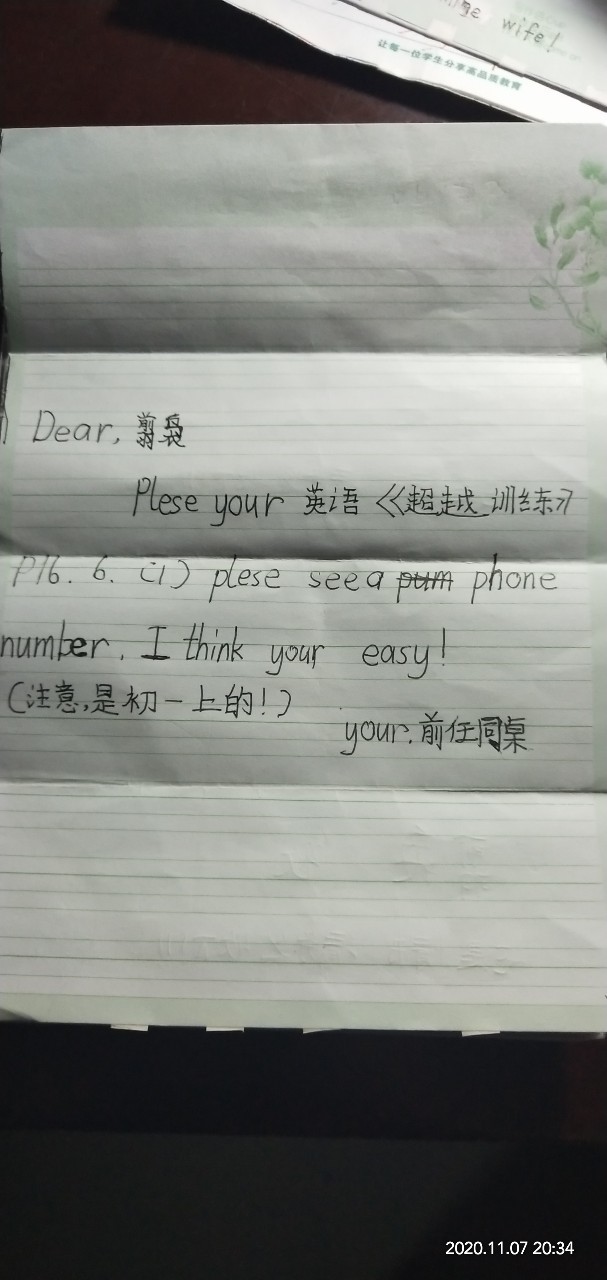 wife!
让每一位学生分享高品质教育
Dear,
Plese your 英语《超越训练》
P76. 6. (1) plese see a phone
number. I think your easy!
(注意,是初一上的!)
your.前任同桌
2020.11.07 20:34